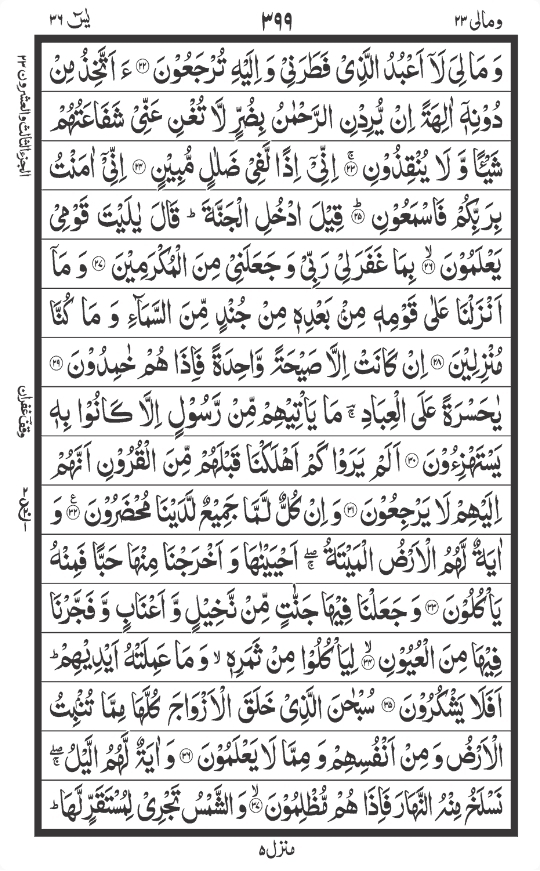 ومالی ۲۳
۳۹۹
یٰسٓ ۳۶
وَ مَا لِیَ لَاۤ اَعۡبُدُ الَّذِیۡ فَطَرَنِیۡ وَ اِلَیۡهِ تُرۡجَعُوۡنَ ﴿۲۲﴾ ءَ اَتَّخِذُ مِنۡ
دُوۡنِهٖۤ اٰلِهَةً اِنۡ یُّرِدۡنِ الرَّحۡمٰنُ بِضُرٍّ لَّا تُغۡنِ عَنِّیۡ شَفَاعَتُهُمۡ
شَیۡـًٔا وَّ لَا یُنۡقِذُوۡنِ ﴿۲۳﴾ۚ اِنِّیۡۤ اِذًا لَّفِیۡ ضَلٰلٍ مُّبِیۡنٍ ﴿۲۴﴾ اِنِّیۡۤ اٰمَنۡتُ
بِرَبِّکُمۡ فَاسۡمَعُوۡنِ ﴿۲۵﴾ؕ قِیۡلَ ادۡخُلِ الۡجَنَّةَ ؕ قَالَ یٰلَیۡتَ قَوۡمِیۡ
یَعۡلَمُوۡنَ ﴿۲۶﴾ۙ بِمَا غَفَرَ لِیۡ رَبِّیۡ وَ جَعَلَنِیۡ مِنَ الۡمُکۡرَمِیۡنَ ﴿۲۷﴾ وَ مَاۤ
اَنۡزَلۡنَا عَلٰی قَوۡمِهٖ مِنۡۢ بَعۡدِهٖ مِنۡ جُنۡدٍ مِّنَ السَّمَآءِ وَ مَا کُنَّا
مُنۡزِلِیۡنَ ﴿۲۸﴾ اِنۡ کَانَتۡ اِلَّا صَیۡحَةً وَّاحِدَةً فَاِذَا هُمۡ خٰمِدُوۡنَ ﴿۲۹﴾
یٰحَسۡرَةً عَلَی الۡعِبَادِ ۚؔ مَا یَاۡتِیۡهِمۡ مِّنۡ رَّسُوۡلٍ اِلَّا کَانُوۡا بِهٖ
یَسۡتَهۡزِءُوۡنَ ﴿۳۰﴾ اَلَمۡ یَرَوۡا کَمۡ اَهۡلَکۡنَا قَبۡلَهُمۡ مِّنَ الۡقُرُوۡنِ اَنَّهُمۡ
اِلَیۡهِمۡ لَا یَرۡجِعُوۡنَ ﴿۳۱﴾ؕ وَ اِنۡ کُلٌّ لَّمَّا جَمِیۡعٌ لَّدَیۡنَا مُحۡضَرُوۡنَ ﴿۳۲﴾٪ وَ
اٰیَةٌ لَّهُمُ الۡاَرۡضُ الۡمَیۡتَةُ ۚۖ اَحۡیَیۡنٰهَا وَ اَخۡرَجۡنَا مِنۡهَا حَبًّا فَمِنۡهُ
یَاۡکُلُوۡنَ ﴿۳۳﴾ وَ جَعَلۡنَا فِیۡهَا جَنّٰتٍ مِّنۡ نَّخِیۡلٍ وَّ اَعۡنَابٍ وَّ فَجَّرۡنَا
فِیۡهَا مِنَ الۡعُیُوۡنِ ﴿۳۴﴾ۙ لِیَاۡکُلُوۡا مِنۡ ثَمَرِهٖ ۙ وَ مَا عَمِلَتۡهُ اَیۡدِیۡهِمۡ ؕ
اَفَلَا یَشۡکُرُوۡنَ ﴿۳۵﴾ سُبۡحٰنَ الَّذِیۡ خَلَقَ الۡاَزۡوَاجَ کُلَّهَا مِمَّا تُنۡۢبِتُ
الۡاَرۡضُ وَ مِنۡ اَنۡفُسِهِمۡ وَ مِمَّا لَا یَعۡلَمُوۡنَ ﴿۳۶﴾ وَ اٰیَةٌ لَّهُمُ الَّیۡلُ ۚۖ
نَسۡلَخُ مِنۡهُ النَّهَارَ فَاِذَا هُمۡ مُّظۡلِمُوۡنَ ﴿۳۷﴾ۙ وَ الشَّمۡسُ تَجۡرِیۡ لِمُسۡتَقَرٍّ لَّهَا ؕ
الجزء الثالث والعشرون ۲۳
وقف غفران
منزل ۵